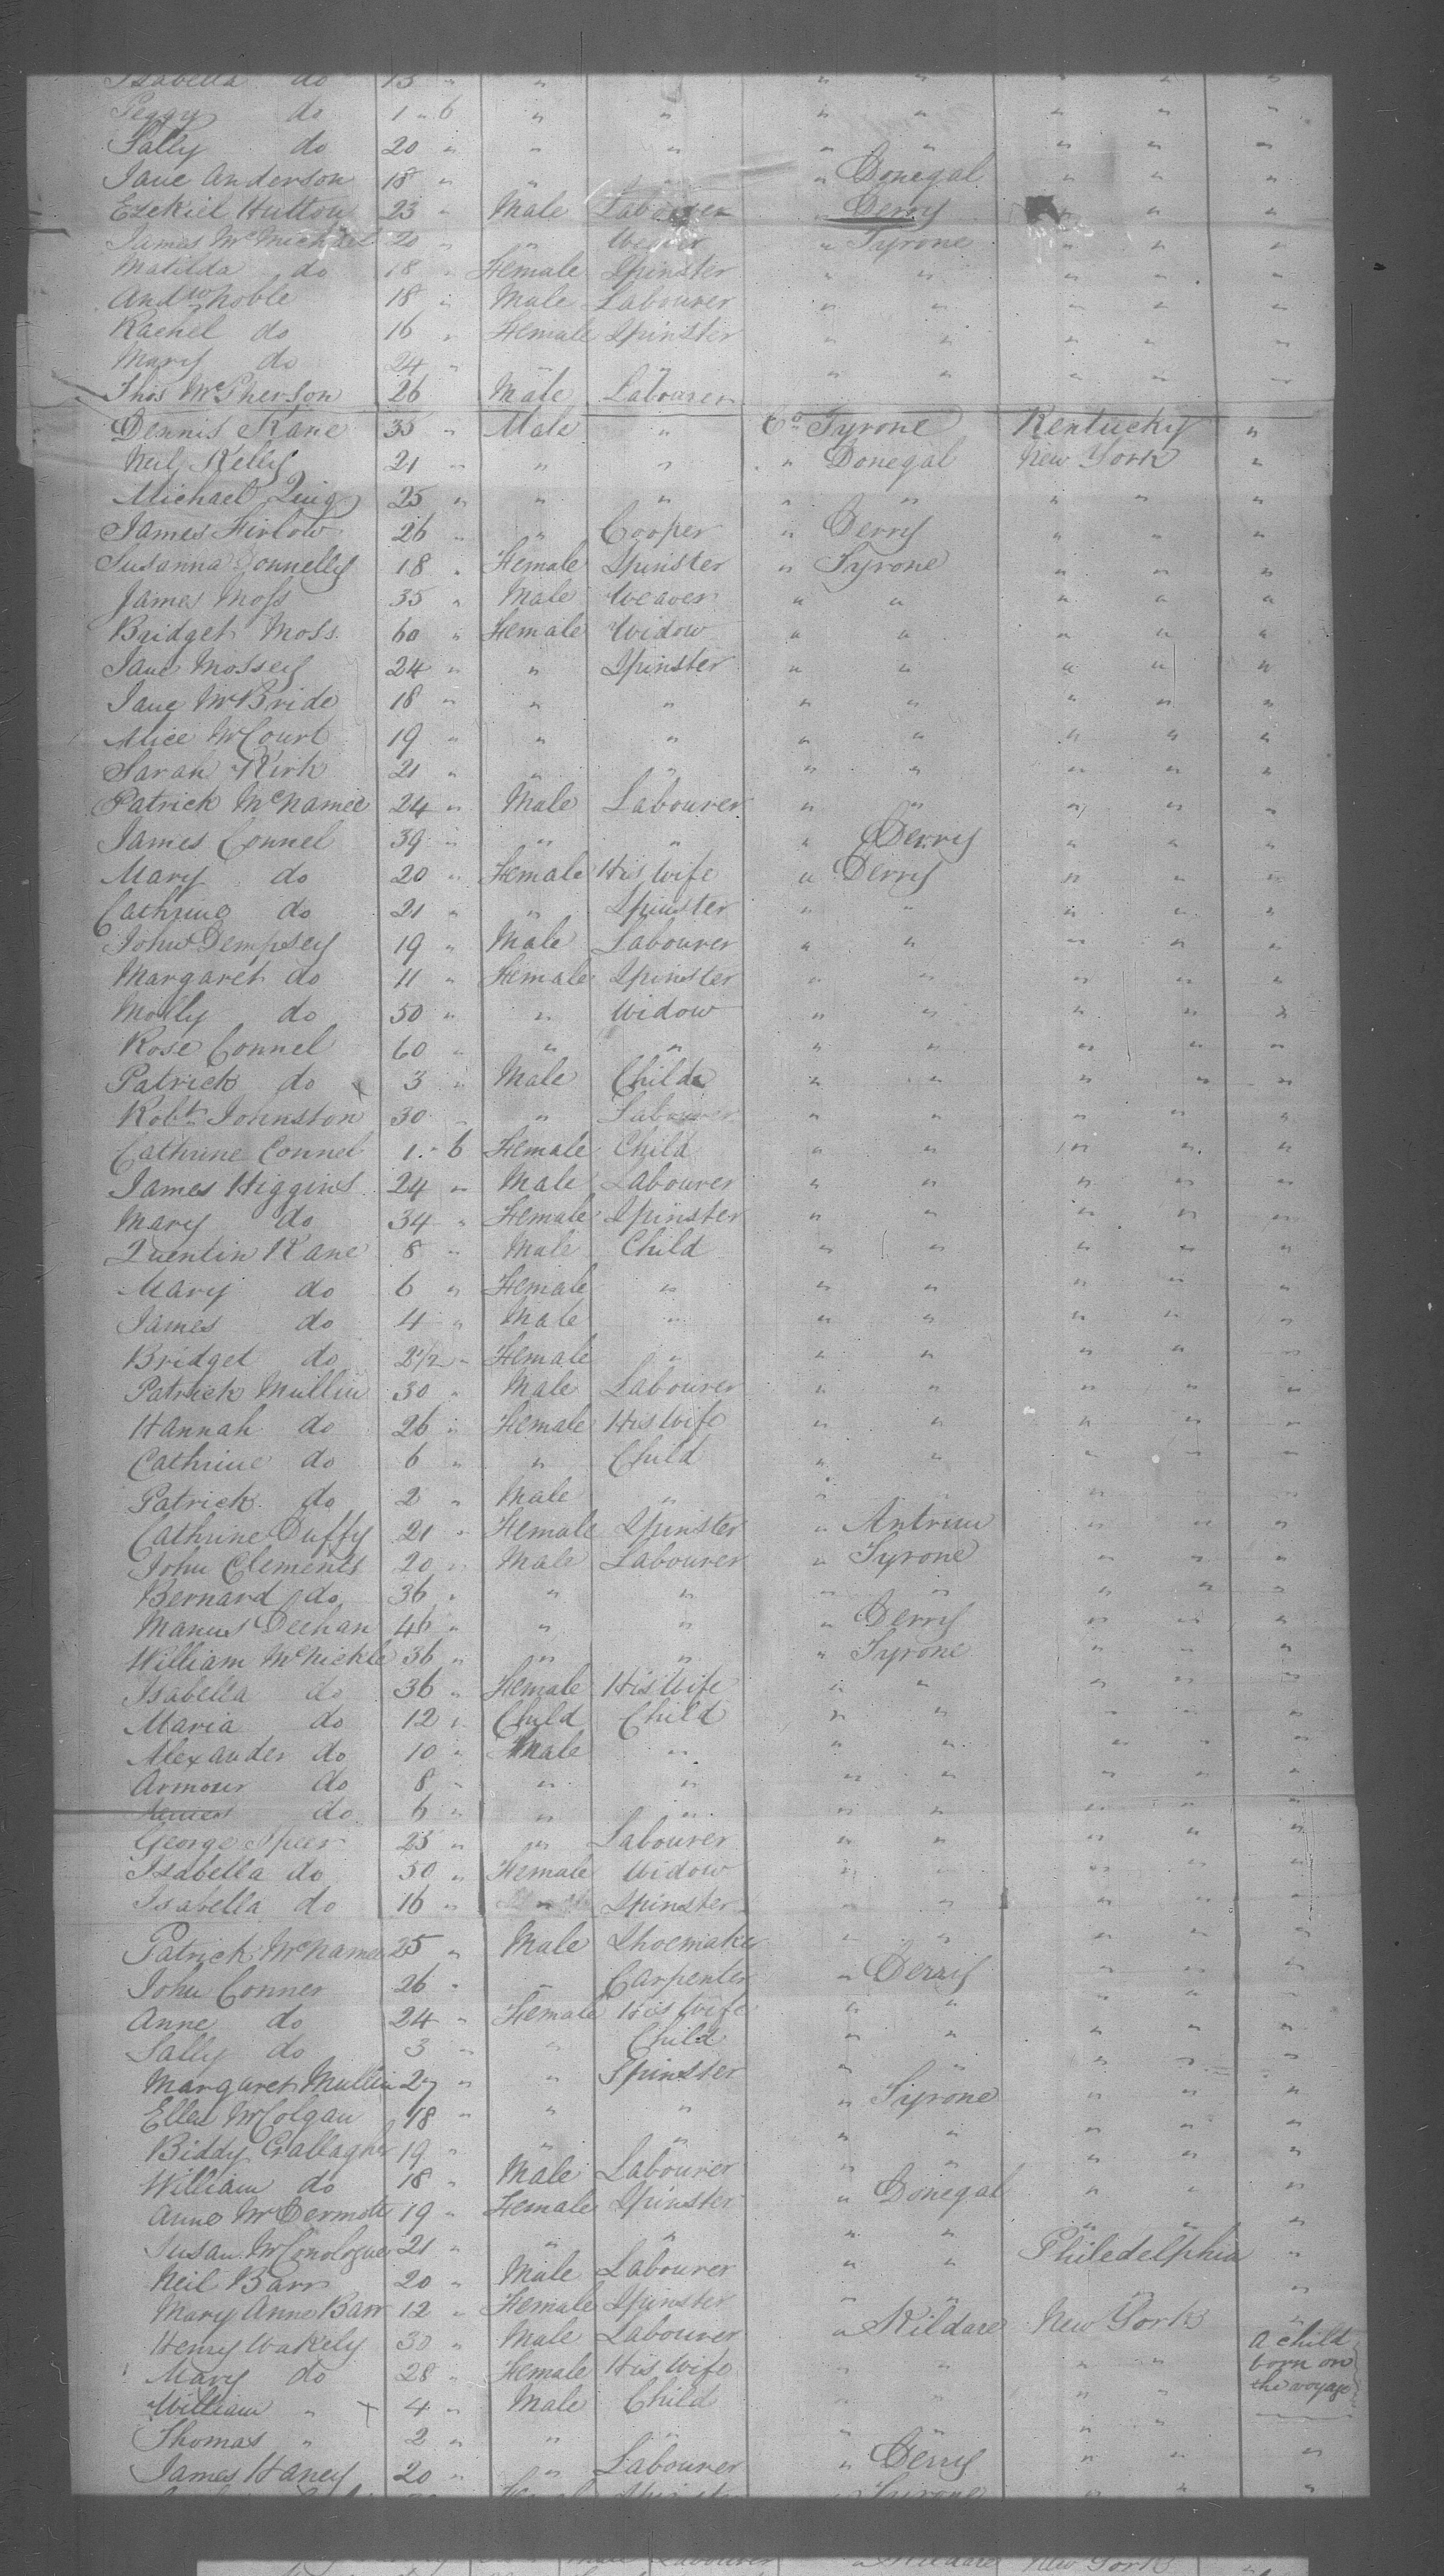 Isabella do 13 " " " " " " "
Peggy do 1 " 6 " " " " " " "
Sally do 20 " " " " " " " "
Jane Anderson 18 " " " " Donegal " " "
Ezekiel Hutton 23 " Male Labourer " Derry " " "
James McMichael 20 " " Weaver " Tyrone " " "
Matilda do 18 " Female Spinster " " " " "
Andw Noble 18 " Male Labourer " " " " "
Rachel do 16 " Female Spinster " " " " "
Mary do 24 " " " " " " " "
Thos McPherson 26 Male Labourer " " " " "
Dennis Kane 35 " Male " Co Tyrone Kentucky "
Neil Kelly 21 " " " " Donegal New York "
Michael Quig 25 " " " " " " " "
James Firlow 26 " " Cooper " Derry " " "
Susanna Donnelly 18 " Female Spinster " Tyrone " " "
James Moss 35 " Male Weaver " " " " "
Bridget Moss 60 " Female Widow " " " " "
Jane Mossey 24 " " Spinster " " " " "
Jane McBride 18 " " " " " " " "
Alice McCourt 19 " " " " " " " "
Sarah Kirk 21 " " " " " " " "
Patrick McNamee 24 " Male Labourer " " " " "
James Connel 39 " " " " Derry " " "
Mary do 20 " Female His Wife " Derry " " "
Cathrine do 21 " " Spinster " " " " "
John Dempsey 19 " Male Labourer " " " " "
Margaret do 11 " Female Spinster " " " " "
Molly do 50 " " Widow " " " " "
Rose Connel 60 " " " " " " " "
Patrick do 3 " Male Child " " " " "
Robt Johnston 30 " Labourer " " " " "
Cathrine Connel 1 " 6 Female Child " " " " "
James Higgins 24 " Male Labourer " " " " "
Mary do 34 " Female Spinster " " " " "
Quentin Kane 8 " Male Child " " " " "
Mary do 6 " Female " " " " " "
James do 4 " Male " " " " " "
Bridget do 2 1/2 " Female " " " " " "
Patrick Mullin 30 " Male Labourer " " " " "
Hannah do 26 " Female His Wife " " " " "
Cathrine do 6 " " Child " " " " "
Patrick do 2 " Male " " " " " "
Cathrine Duffy 21 " Female Spinster " Antrim " " "
John Clements 20 " Male Labourer " Tyrone " " "
Bernard do 36 " " " " " " " "
Manus Deehan 46 " " " " Derry " " "
William McNickle 36 " " " " Tyrone " " "
Isabella do 36 " Female His Wife " " " " "
Maria do 12 " Child Child " " " " "
Alexander do 10 " Male " " " " " "
Armour do 8 " " " " " " " "
James do 6 " " " " " " " "
George Speer 25 " " Labourer " " " " "
Isabella do 50 " Female Widow " " " " "
Isabella do 16 " " Spinster " " " " "
Patrick McNamee 25 " Male Shoemaker " " " " "
John Conner 26 " " Carpenter " Derry " " "
Anne do 24 " Female His Wife " " " " "
Sally do 3 " " Child " " " " "
Margaret Mullin 27 " " Spinster " " " " "
Ellen McColgan 18 " " " " Tyrone " " "
Biddy Gallagher 19 " " " " " " " "
William do 18 " Male Labourer " " " " "
Anne McDermott 19 " Female Spinster " Donegal " " "
Susan McConologue 21 " " " " " " " "
Neil Barr 20 " Male Labourer " " Philedelphia "
Mary Anne Barr 12 " Female Spinster " " " "
Henry Wakely 30 " Male Labourer " Kildare New York "
Mary do 28 " Female His Wife " " " " A child
born on
the voyage
William " 4 " Male Child " " " "
Thomas " 2 " " " " " " "
James Haney 20 " " Labourer " Derry " " "
Tyrone " " "
Labourer " Kildare New York